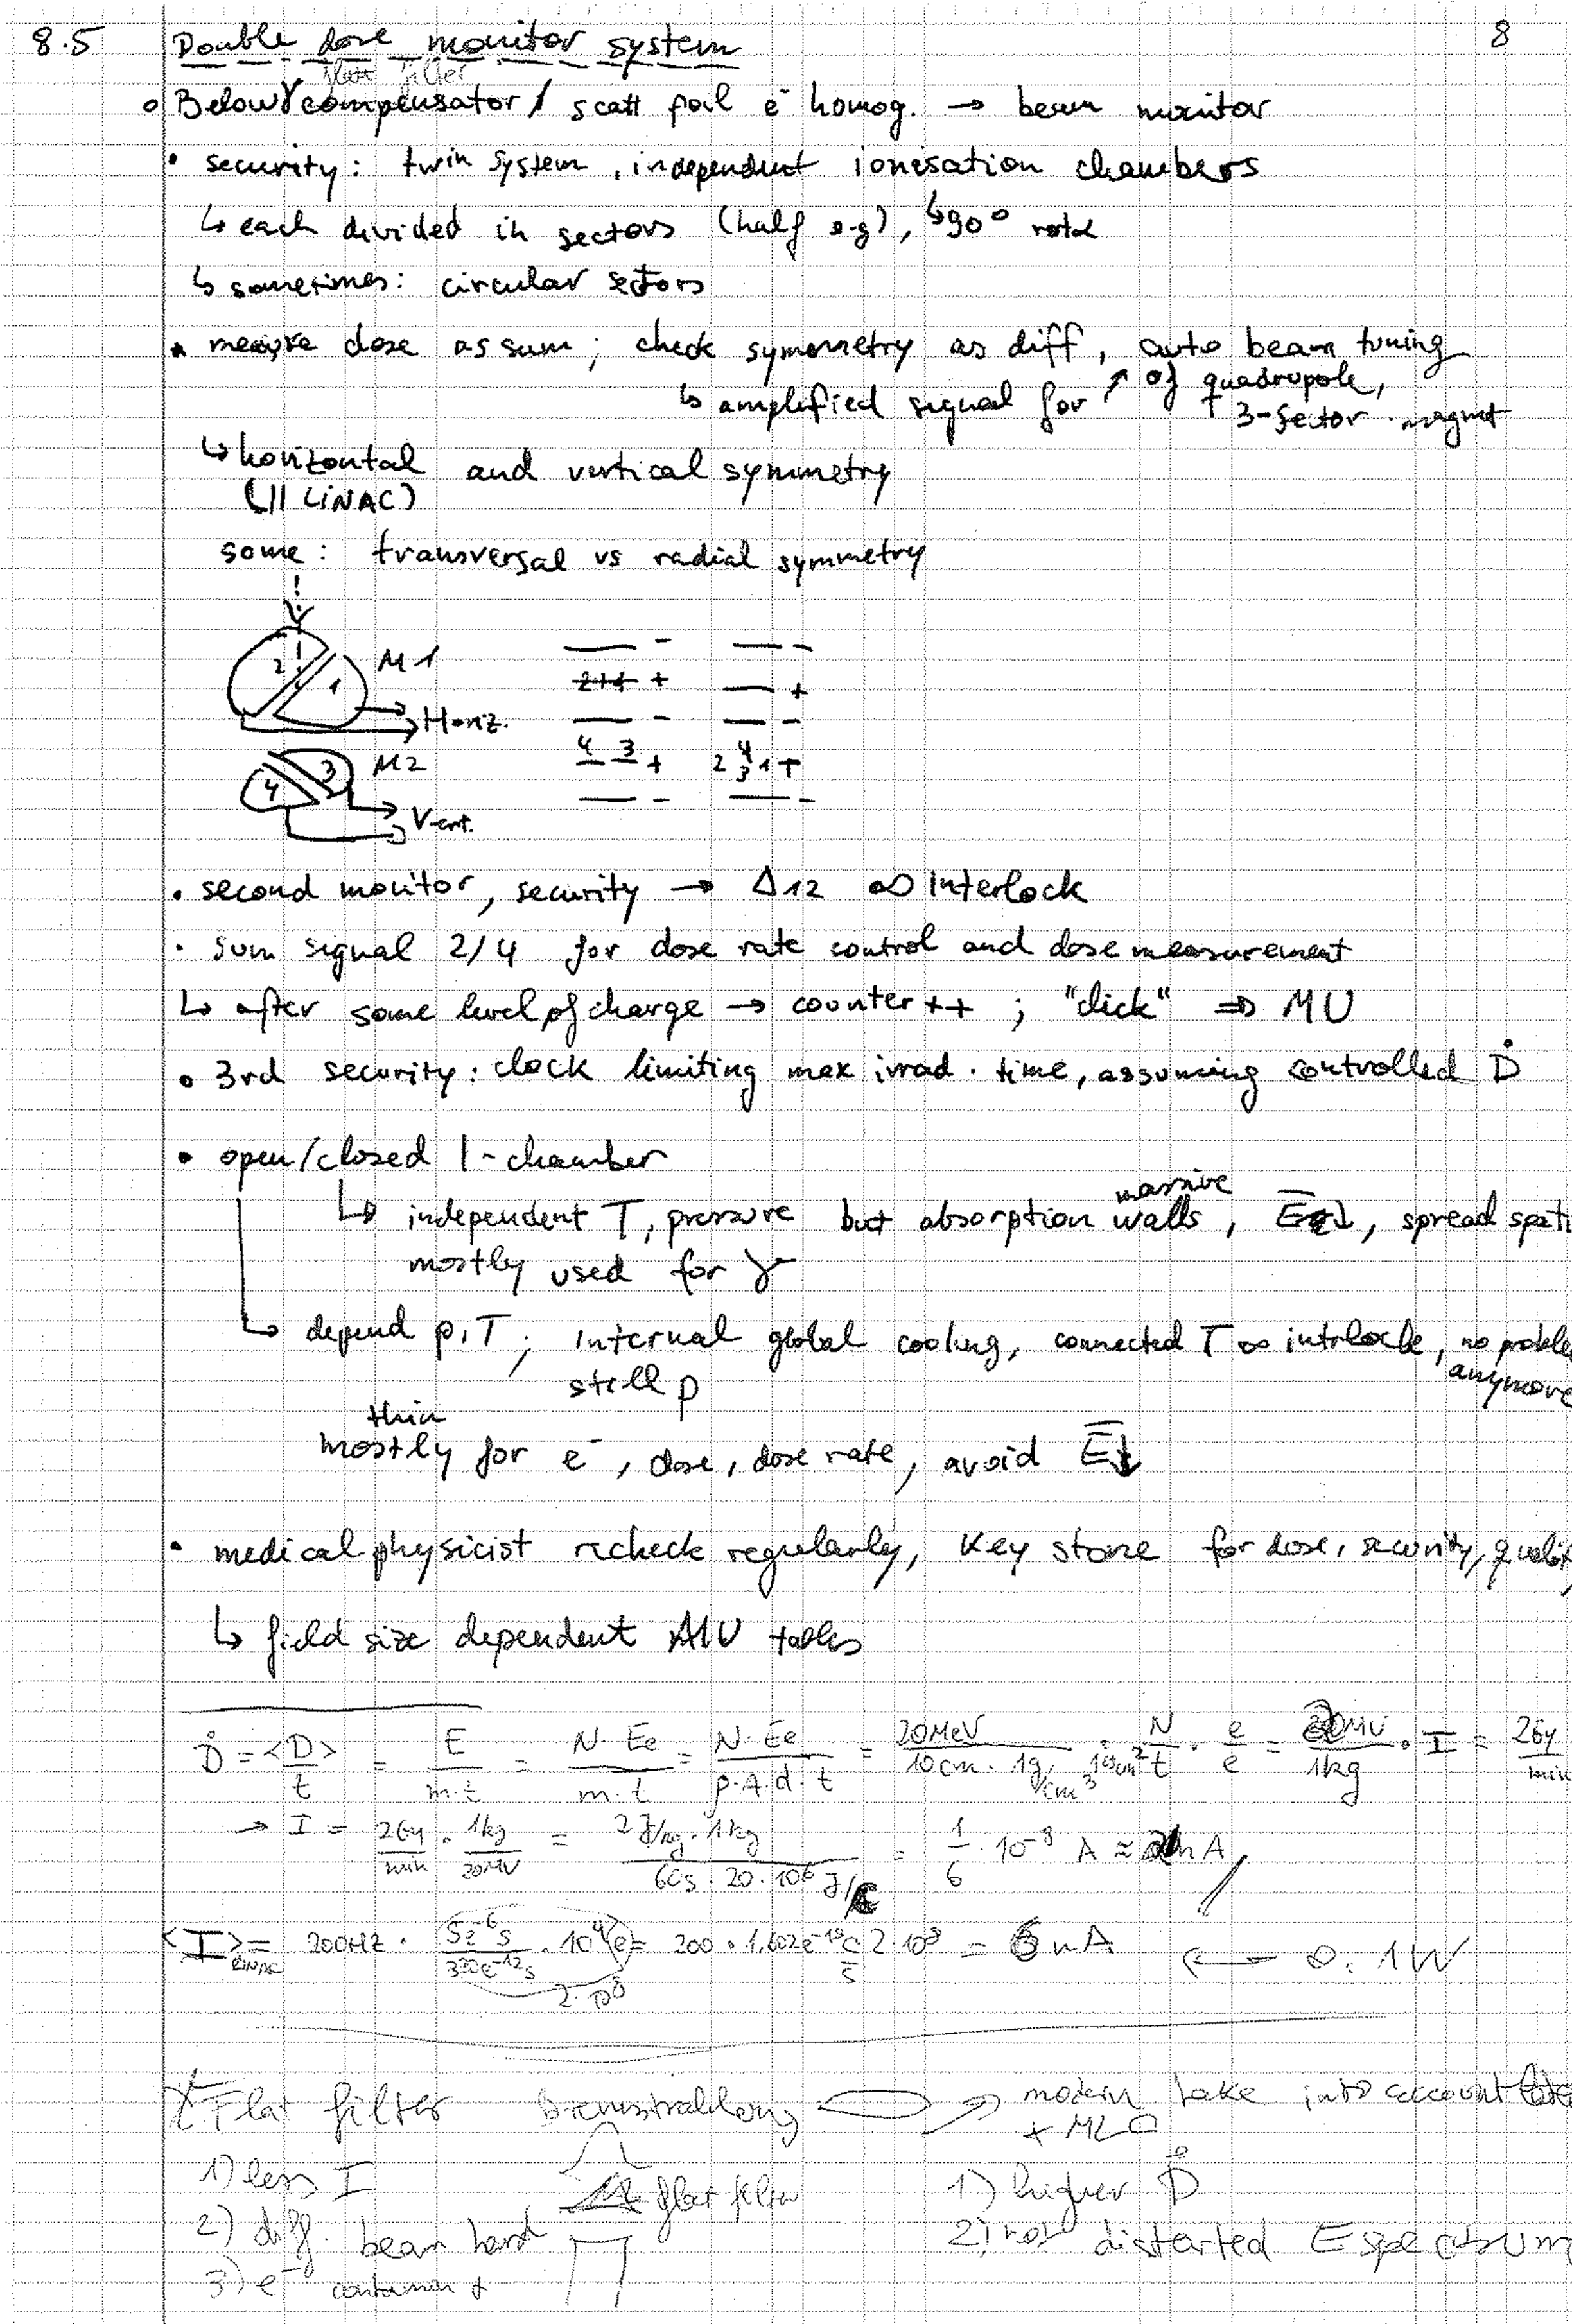 8.5 Double dose monitor system 8
flat filter
Below γ compensator / scatt foil e⁻ homog. → beam monitor
• security: twin system, independent ionisation chambers
↳ each divided in sectors (half e.g), ↳ 90°
↳ sometimes: circular sectors
• measure dose as sum; check symmetry as diff, auto beam tuning
↳ amplified signal for ↗ of quadrupole,
↑ 3-sector magnet
↳ horizontal and vertical symmetry
(|| LINAC)
some: transversal vs radial symmetry
2 1 M1
Horiz.
2+1 +
4 3 M2
Vert.
4 3 +
2 4 3 1 +
• second monitor, security → Δ12 ∞ Interlock
• sum signal 2/4 for dose rate control and dose measurement
↳ after some level of charge → counter ++ ; "click" ⇒ MU
• 3rd security: clock limiting max irrad. time, assuming controlled Ḋ
• open/closed I-chamber
massive
↳ independent T, pressure but absorption walls, E̅↓, spread
mostly used for γ
↳ depend p,T; Internal global cooling, connected T ∞ interlock, no
still p anymore
thin
mostly for e⁻, dose, dose rate, avoid E̅↓
• medical physicist recheck regularly, Key stone for dose, security,
↳ field size dependent MU tables
Ḋ = <D>/t = E/(m·t) = N·Ee/(m·t) = N·Ee/(ρ·A·d·t) = 20MeV/(10cm · 1g/cm³ · 10cm²) · N/t · e/e = 20MV/1kg · I = 2Gy/min
→ I = 2Gy/min · 1kg/20MV = 2J/kg · 1kg/(60s · 20·10⁶ J/C) = 1/6 · 10⁻⁸ A ≈ 2nA
<I>LINAC = 200Hz · 5e⁻⁶s/330e⁻¹²s · 10⁴ (e) = 200 · 1.602e⁻¹⁹ C/s 2·10⁸ = 6nA ← 0.1W
2·10⁸
Flat filter Bremsstrahlung → modern take into account
+ MLC
1) less I flat filter 1) higher Ḋ
2) diff. beam hard 2) not distorted E spectrum
3) e⁻